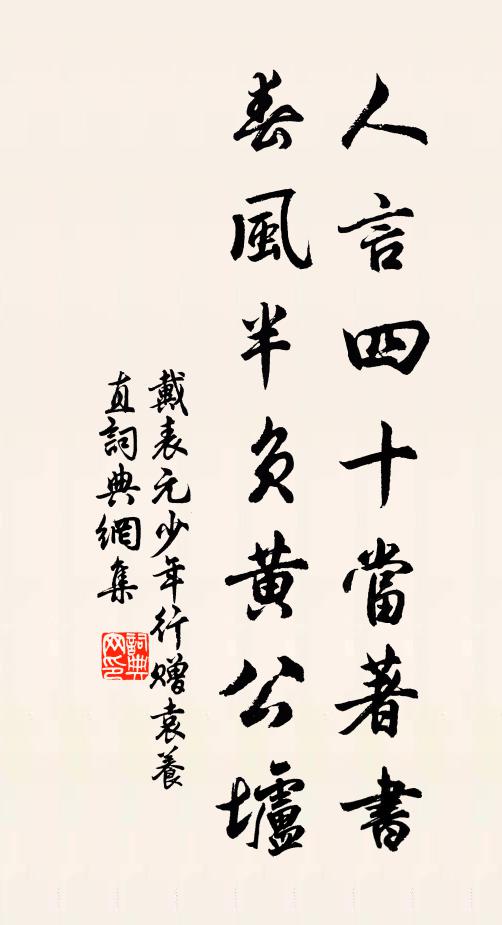 人言四十當著書
春風半負黄公壚
戴表元少年行贈袁養
直詞典網集
詞典网印